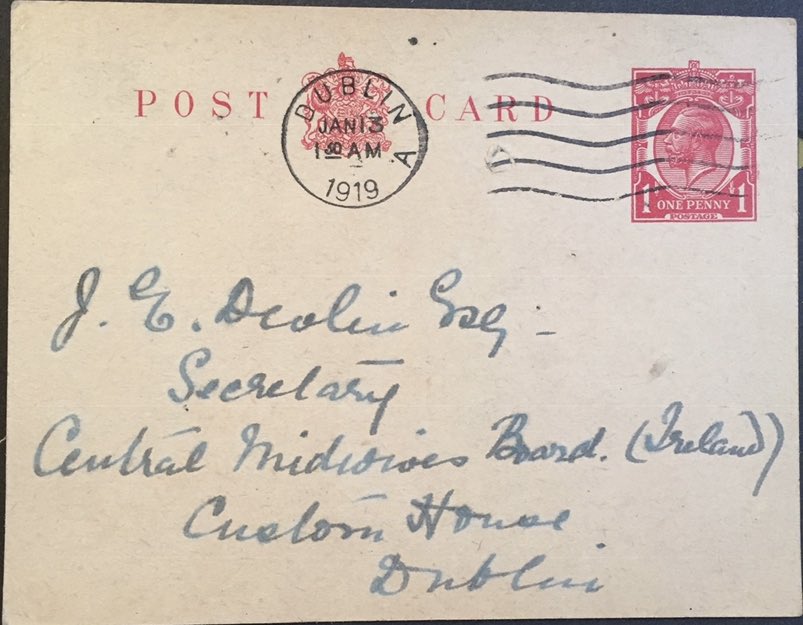 POST CARD
DUBLIN A
JAN 13
1 30 AM
1919
1 ONE PENNY 1
POSTAGE
J. E. Devlin Esq -
Secretary
Central Midwives Board. (Ireland)
Custom House
Dublin